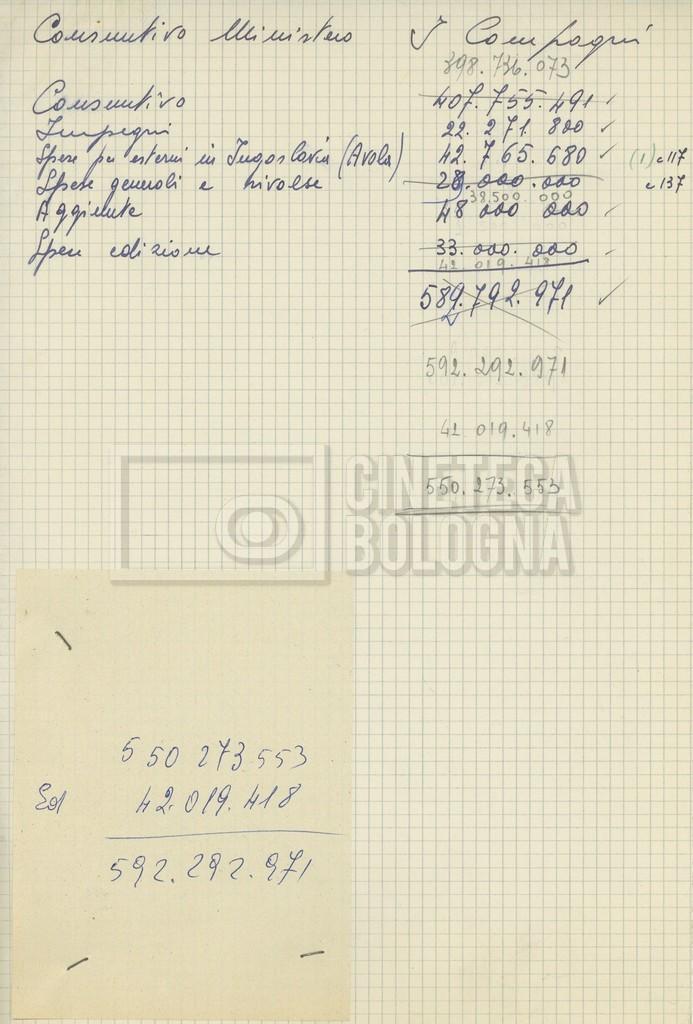 Consuntivo Ministero I Compagni
398.736.073
Consuntivo 407.755.491 ✓
Impegni 22.271.800 ✓
Spese per esterni in Jugoslavia (Avola) 42.765.680 ✓ (1) c 117
Spese generali e rivalse 28.000.000 c 137
38.500.000
Aggiunte 48 000 000 ✓
Spese edizione 33.000.000
42.019.418
589.792.971 ✓
592.292.971
42.019.418
550.273.553
CINETECA
BOLOGNA
550 273.553
Ed 42.019.418
592.292.971